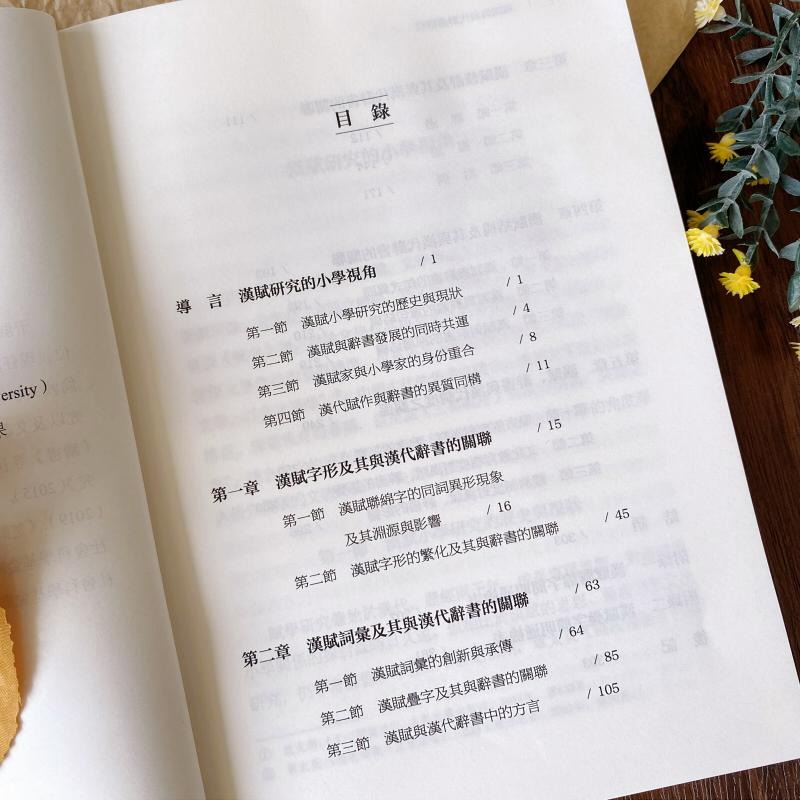 ersity )
目 錄
導 言 漢賦研究的小學視角 / 1
第一節 漢賦小學研究的歷史與現狀 / 1
第二節 漢賦與辭書發展的同時共運 / 4
第三節 漢賦家與小學家的身份重合 / 8
第四節 漢代賦作與辭書的異質同構 / 11
第一章 漢賦字形及其與漢代辭書的關聯 / 15
第一節 漢賦聯綿字的同詞異形現象
及其淵源與影響 / 16
第二節 漢賦字形的繁化及其與辭書的關聯 / 45
第二章 漢賦詞彙及其與漢代辭書的關聯 / 63
第一節 漢賦詞彙的創新與承傳 / 64
第二節 漢賦疊字及其與辭書的關聯 / 85
第三節 漢賦與漢代辭書中的方言 / 105